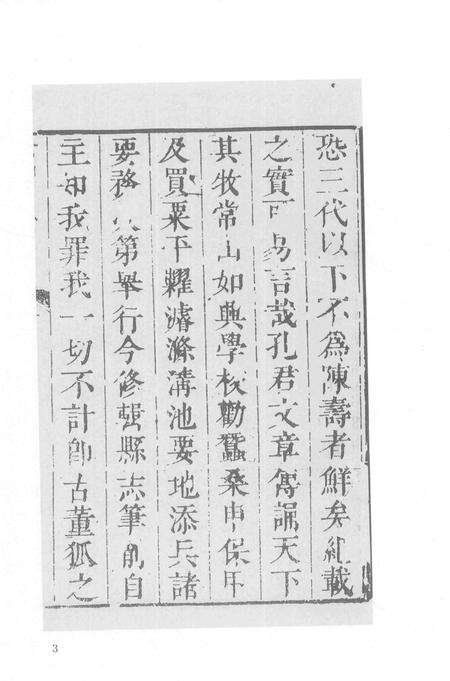 恐三代以下不為陳壽者鮮矣紀載
之實可易言哉孔君文章傳誦天下
其牧常山如興學校勸蠶桑申保甲
及買粟平糶濬滌溝池要地添兵諸
要務次第舉行今修縣志筆削自
主知我罪我一切不計即古董狐之
3